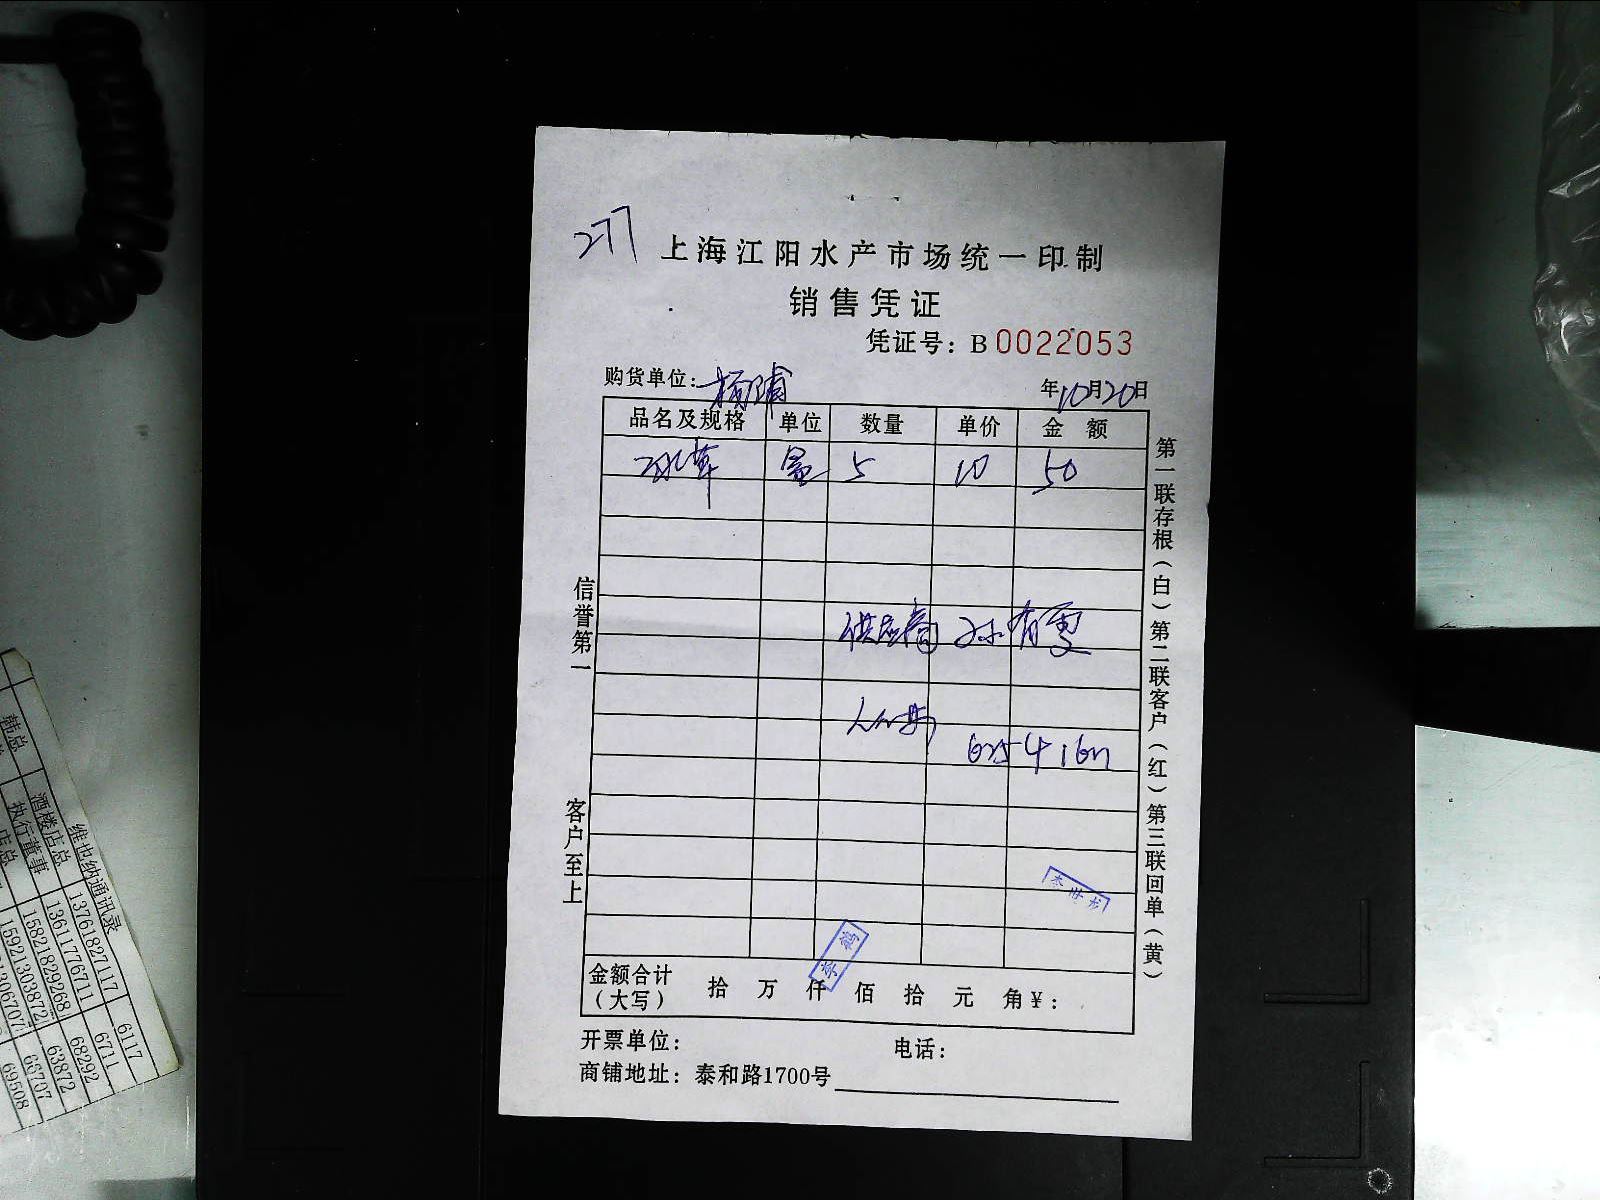 277
上海江阳水产市场统一印制
销售凭证
凭证号：B0022053
购货单位：杨浦
年10月20日
品名及规格 单位 数量 单价 金额
5 10 50
供应商 孙有更
625416
金额合计（大写） 拾 万 仟 佰 拾 元 角 ¥：
开票单位： 电话：
商铺地址：泰和路1700号
信誉第一
客户至上
第一联存根（白）第二联客户（红）第三联回单（黄）
维也纳通讯录
酒楼店总 13761827117 6117
执行董事 13611776711 6711
15821829268 68292
15921303872 63872
66707
69508
韩总
店总